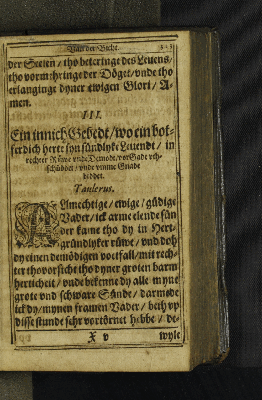 Van der Bicht.
der Seelen / tho beteringe des Leuens /
tho vormehringe der Döget / vnde tho
erlanginge dyner ewigen Glori / A-
men.
III.
Ein innich Gebedt / wo ein bot-
ferdich herte syn sündlyke Leuendt / in
rechter Rüwe vnde Demodt / vor Gade
vnde vmme Gnade
biddet.
Taulerus.
ALmechtige / ewige / güdige
Vader / ick arme elende sün
der kame tho dy in Hert-
gründlyker rüwe / vnd doh
dy einen demödigen voetfall / mit rech-
ter thovorsicht tho dyner groten barm
herticheit / vnde bekenne dy alle myne
grote vnd schware Sünde / darmede
ick dy / mynen framen Vader / beth vp
disse stunde sehr vortörnet hebbe / de-
X v
wyle